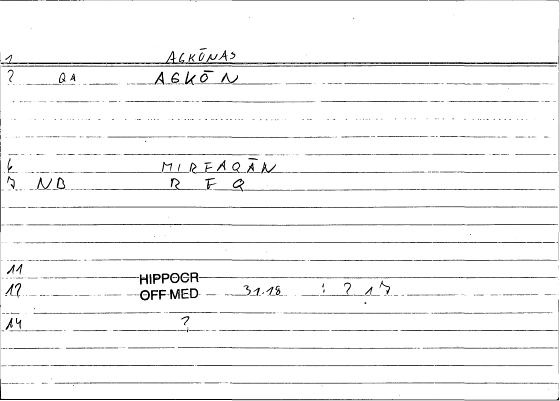 1 AGKŌNAS
2 QA AGKŌN
6 MIRFAQĀN
7 ND R F Q
11
HIPPOCR
12 OFF MED 31.18 : 2 17
14 ?